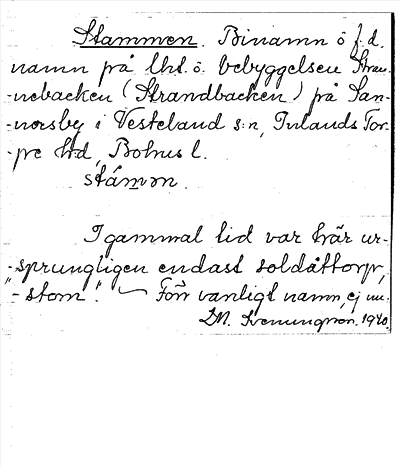 Stammen. Binamn o. f.d.
namn på lht. o. bebyggelsen Stran-
-nebacken (Strandbacken) på San-
-norsby i Vesteland s:n, Inlands Tor-
-pe hd, Bohus l.
stámən.
I gammal tid var här ur-
-sprungligen endast soldattorp,
"-stom". – Förr vanligt namn, ej nu.
M. Svenungson. 1940.